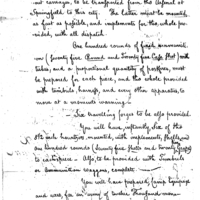 carriages, to be transported from the Arsenal at
Springfield to this city. The latter must be mounted,
as fast as possible, and implements for the whole, pro-
vided, with all dispatch.
One hundred rounds of fixed ammunition
(Seventy five Round and Twenty five Case Shot) with
tubes, and a proportional quantity of portfires, must
be prepared for each piece, and the whole, provided
with timbrils, harness, and every other apparatus, to
move at a moments warning.
Six travelling forges to be also provided.
You will have, instantly, six of the
inch howitzers, mounted, with implements, &
one hundred rounds (Seventy five Shells and Twenty five
to each piece. Also, to be provided with Timbrils
or Ammunition waggons, complete.
You will have prepared, Camp Equipage
and were, for an army of twelve Thousand men